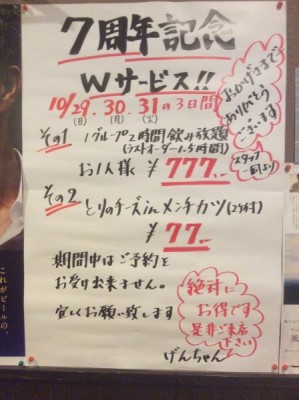 7周年記念
Wサービス!!
おかげさまで
ありがとう
ございます
スタッフ
一同より
10/29.30.31の3日間
(日) (月) (火)
その1 1グループ2時間飲み放題
(ラストオーダー1.5時間)
お1人様 ¥777.-
その2 とりのチーズinメンチカツ(2ケ付)
¥77.-
期間中はご予約を
お受け出来ません。
宜しくお願い致します
絶対に
お得です
是非ご来店
下さい
げんちゃん
これがビールの、